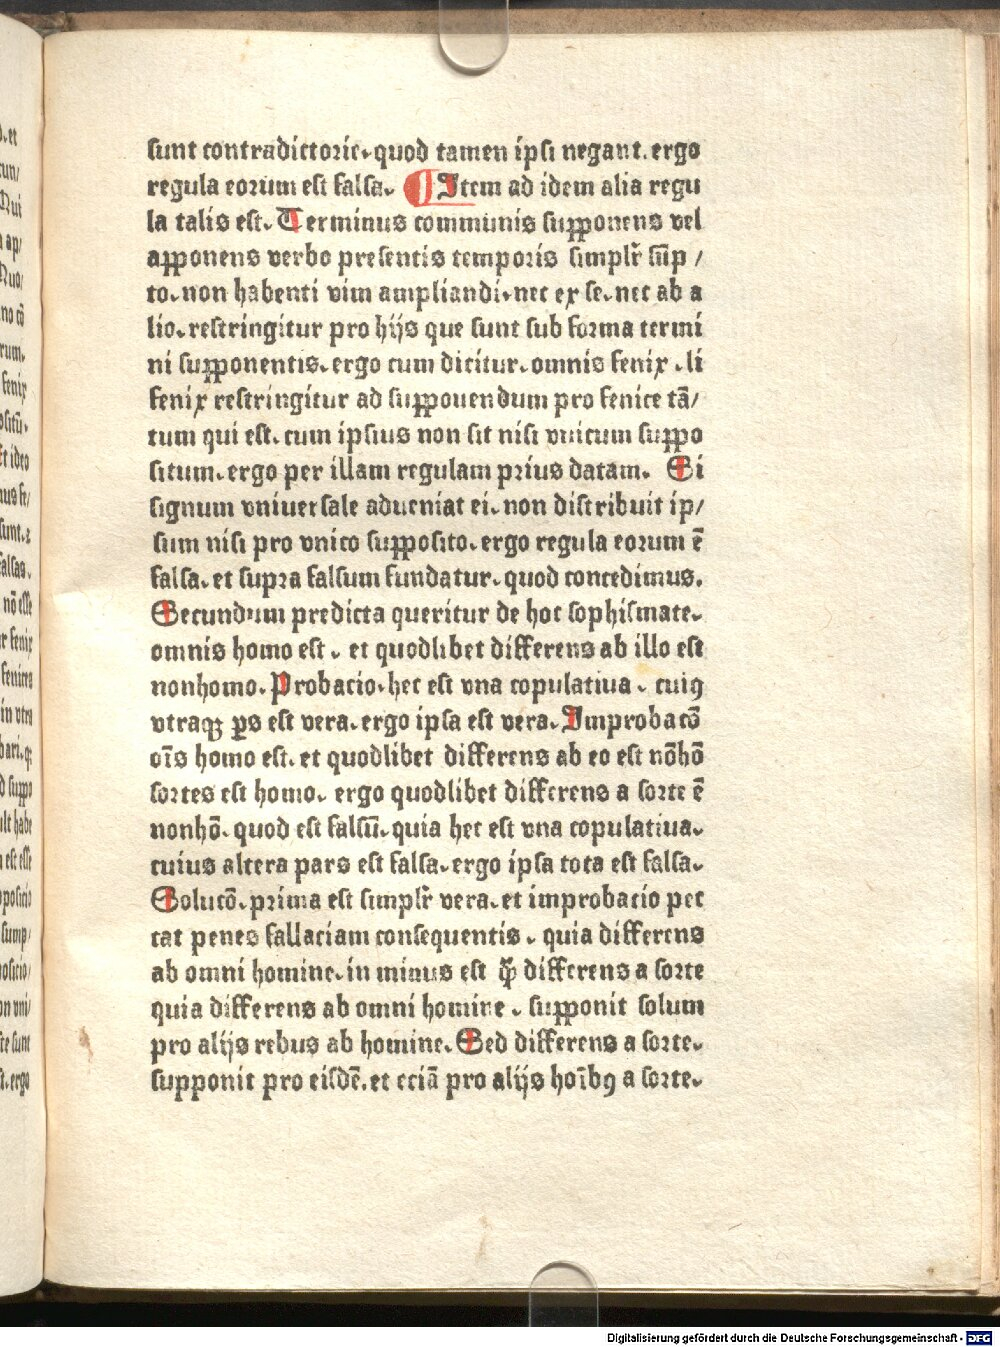 sunt contradictorie. quod tamen ipsi negant. ergo
regula eorum est falsa. Item ad idem alia regu
la talis est. Terminus communis supponens vel
apponens verbo presentis temporis simplr̄ sūp /
to. non habenti vim ampliandi. nec ex se. nec ab a
lio. restringitur pro hijs que sunt sub forma termi
ni supponentis. ergo cum dicitur. omnis fenix. li
fenix restringitur ad supponendum pro fenice tā/
tum qui est. cum ipsius non sit nisi vnicum suppo
situm. ergo per illam regulam prius datam. Si
signum vniuersale adueniat ei. non distribuit ip/
sum nisi pro vnico supposito. ergo regula eorum ē
falsa. et supra falsum fundatur. quod concedimus.
Secundum predicta queritur de hoc sophismate.
omnis homo est. et quodlibet differens ab illo est
nonhomo. Probacio. hec est vna copulatiua. cuiꝰ
vtraqꝫ ꝑs est vera. ergo ipsa est vera. Improbacō
oīs homo est. et quodlibet differens ab eo est nōhō
sortes est homo. ergo quodlibet differens a sorte ē
nonhō. quod est falsū. quia hec est vna copulatiua.
cuius altera pars est falsa. ergo ipsa tota est falsa.
Solucō. prima est simplr̄ vera. et improbacio pec
cat penes fallaciam consequentis. quia differens
ab omni homine. in minus est ꝙ̄ differens a sorte
quia differens ab omni homine. supponit solum
pro alijs rebus ab homine. Sed differens a sorte.
supponit pro eisdē. et eciā pro alijs hoībꝰ a sorte.
Digitalisierung gefördert durch die Deutsche Forschungsgemeinschaft - DFG